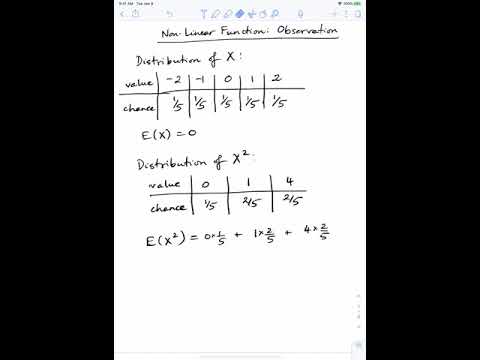 9:41 AM Tue Jan 8
100%
Non-Linear Function: Observation
Distribution of X:
value -2 -1 0 1 2
chance 1/5 1/5 1/5 1/5 1/5
E(X) = 0
Distribution of X²:
value 0 1 4
chance 1/5 2/5 2/5
E(X²) = 0×1/5 + 1×2/5 + 4×2/5